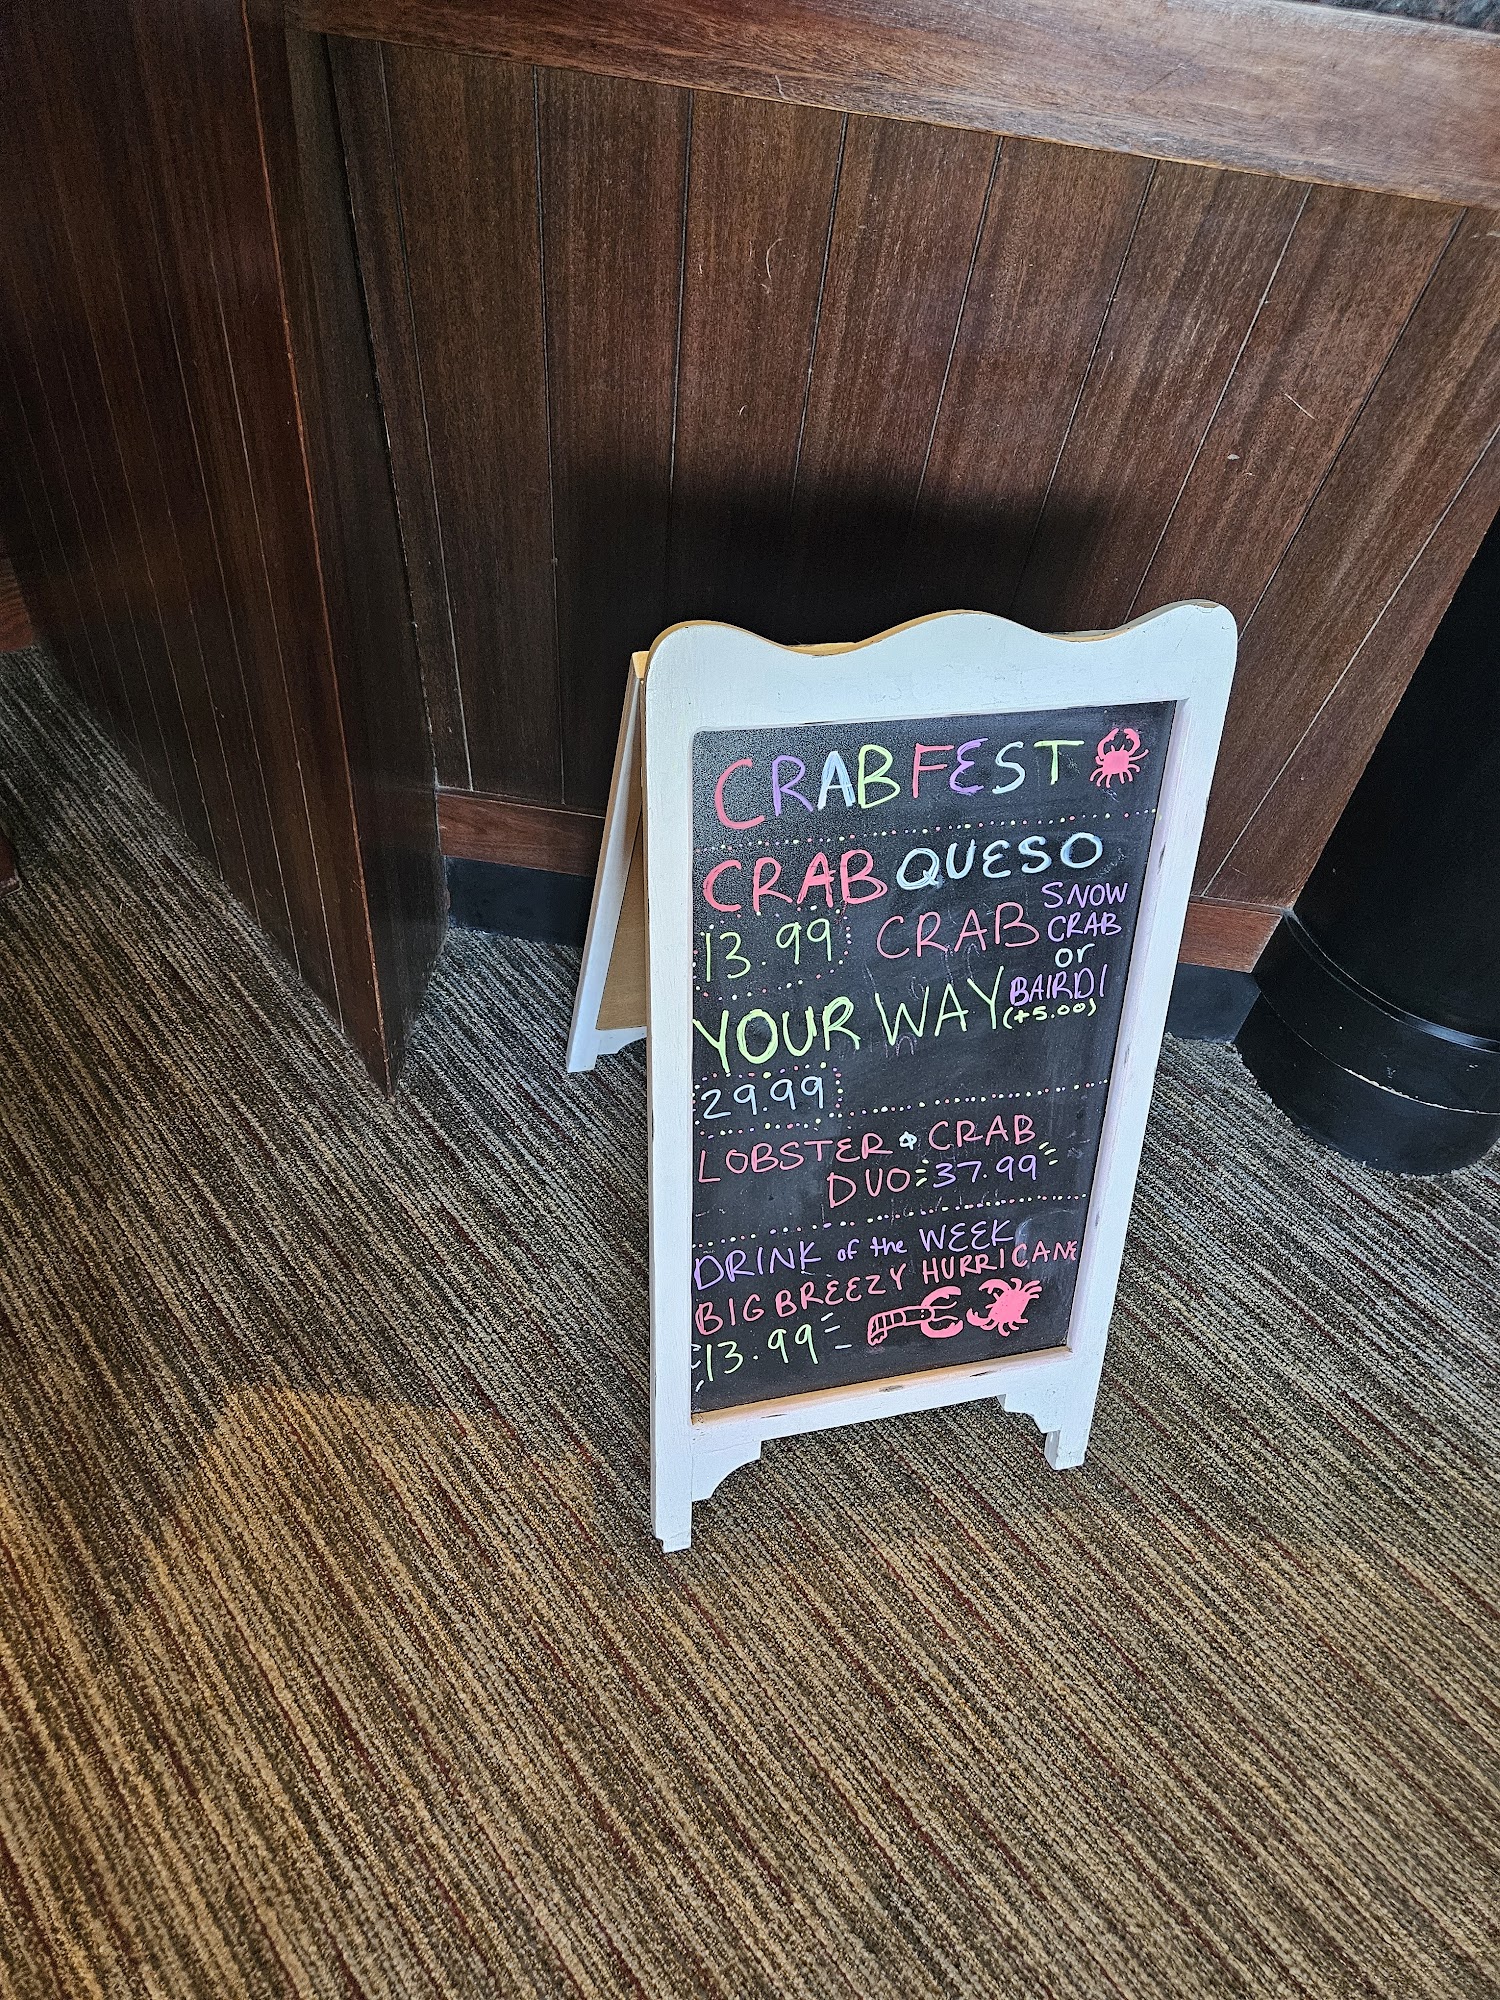 CRABFEST
CRAB QUESO
13.99
CRAB
YOUR WAY
SNOW
CRAB
or
BAIRDI
(+5.00)
29.99
LOBSTER & CRAB
DUO 37.99
DRINK of the WEEK
BIG BREEZY HURRICANE
13.99